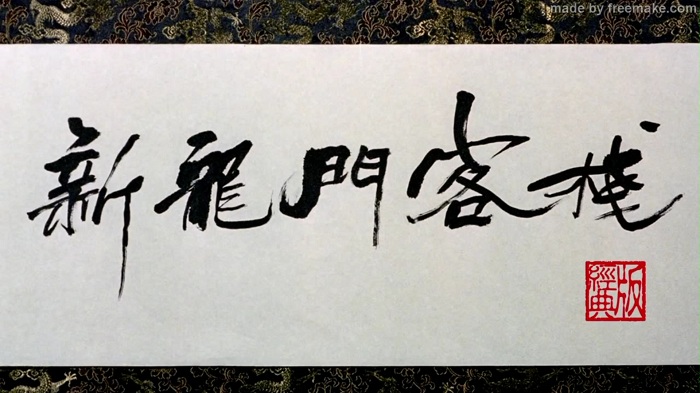 made by freemake.com
新龍門客棧
經典版